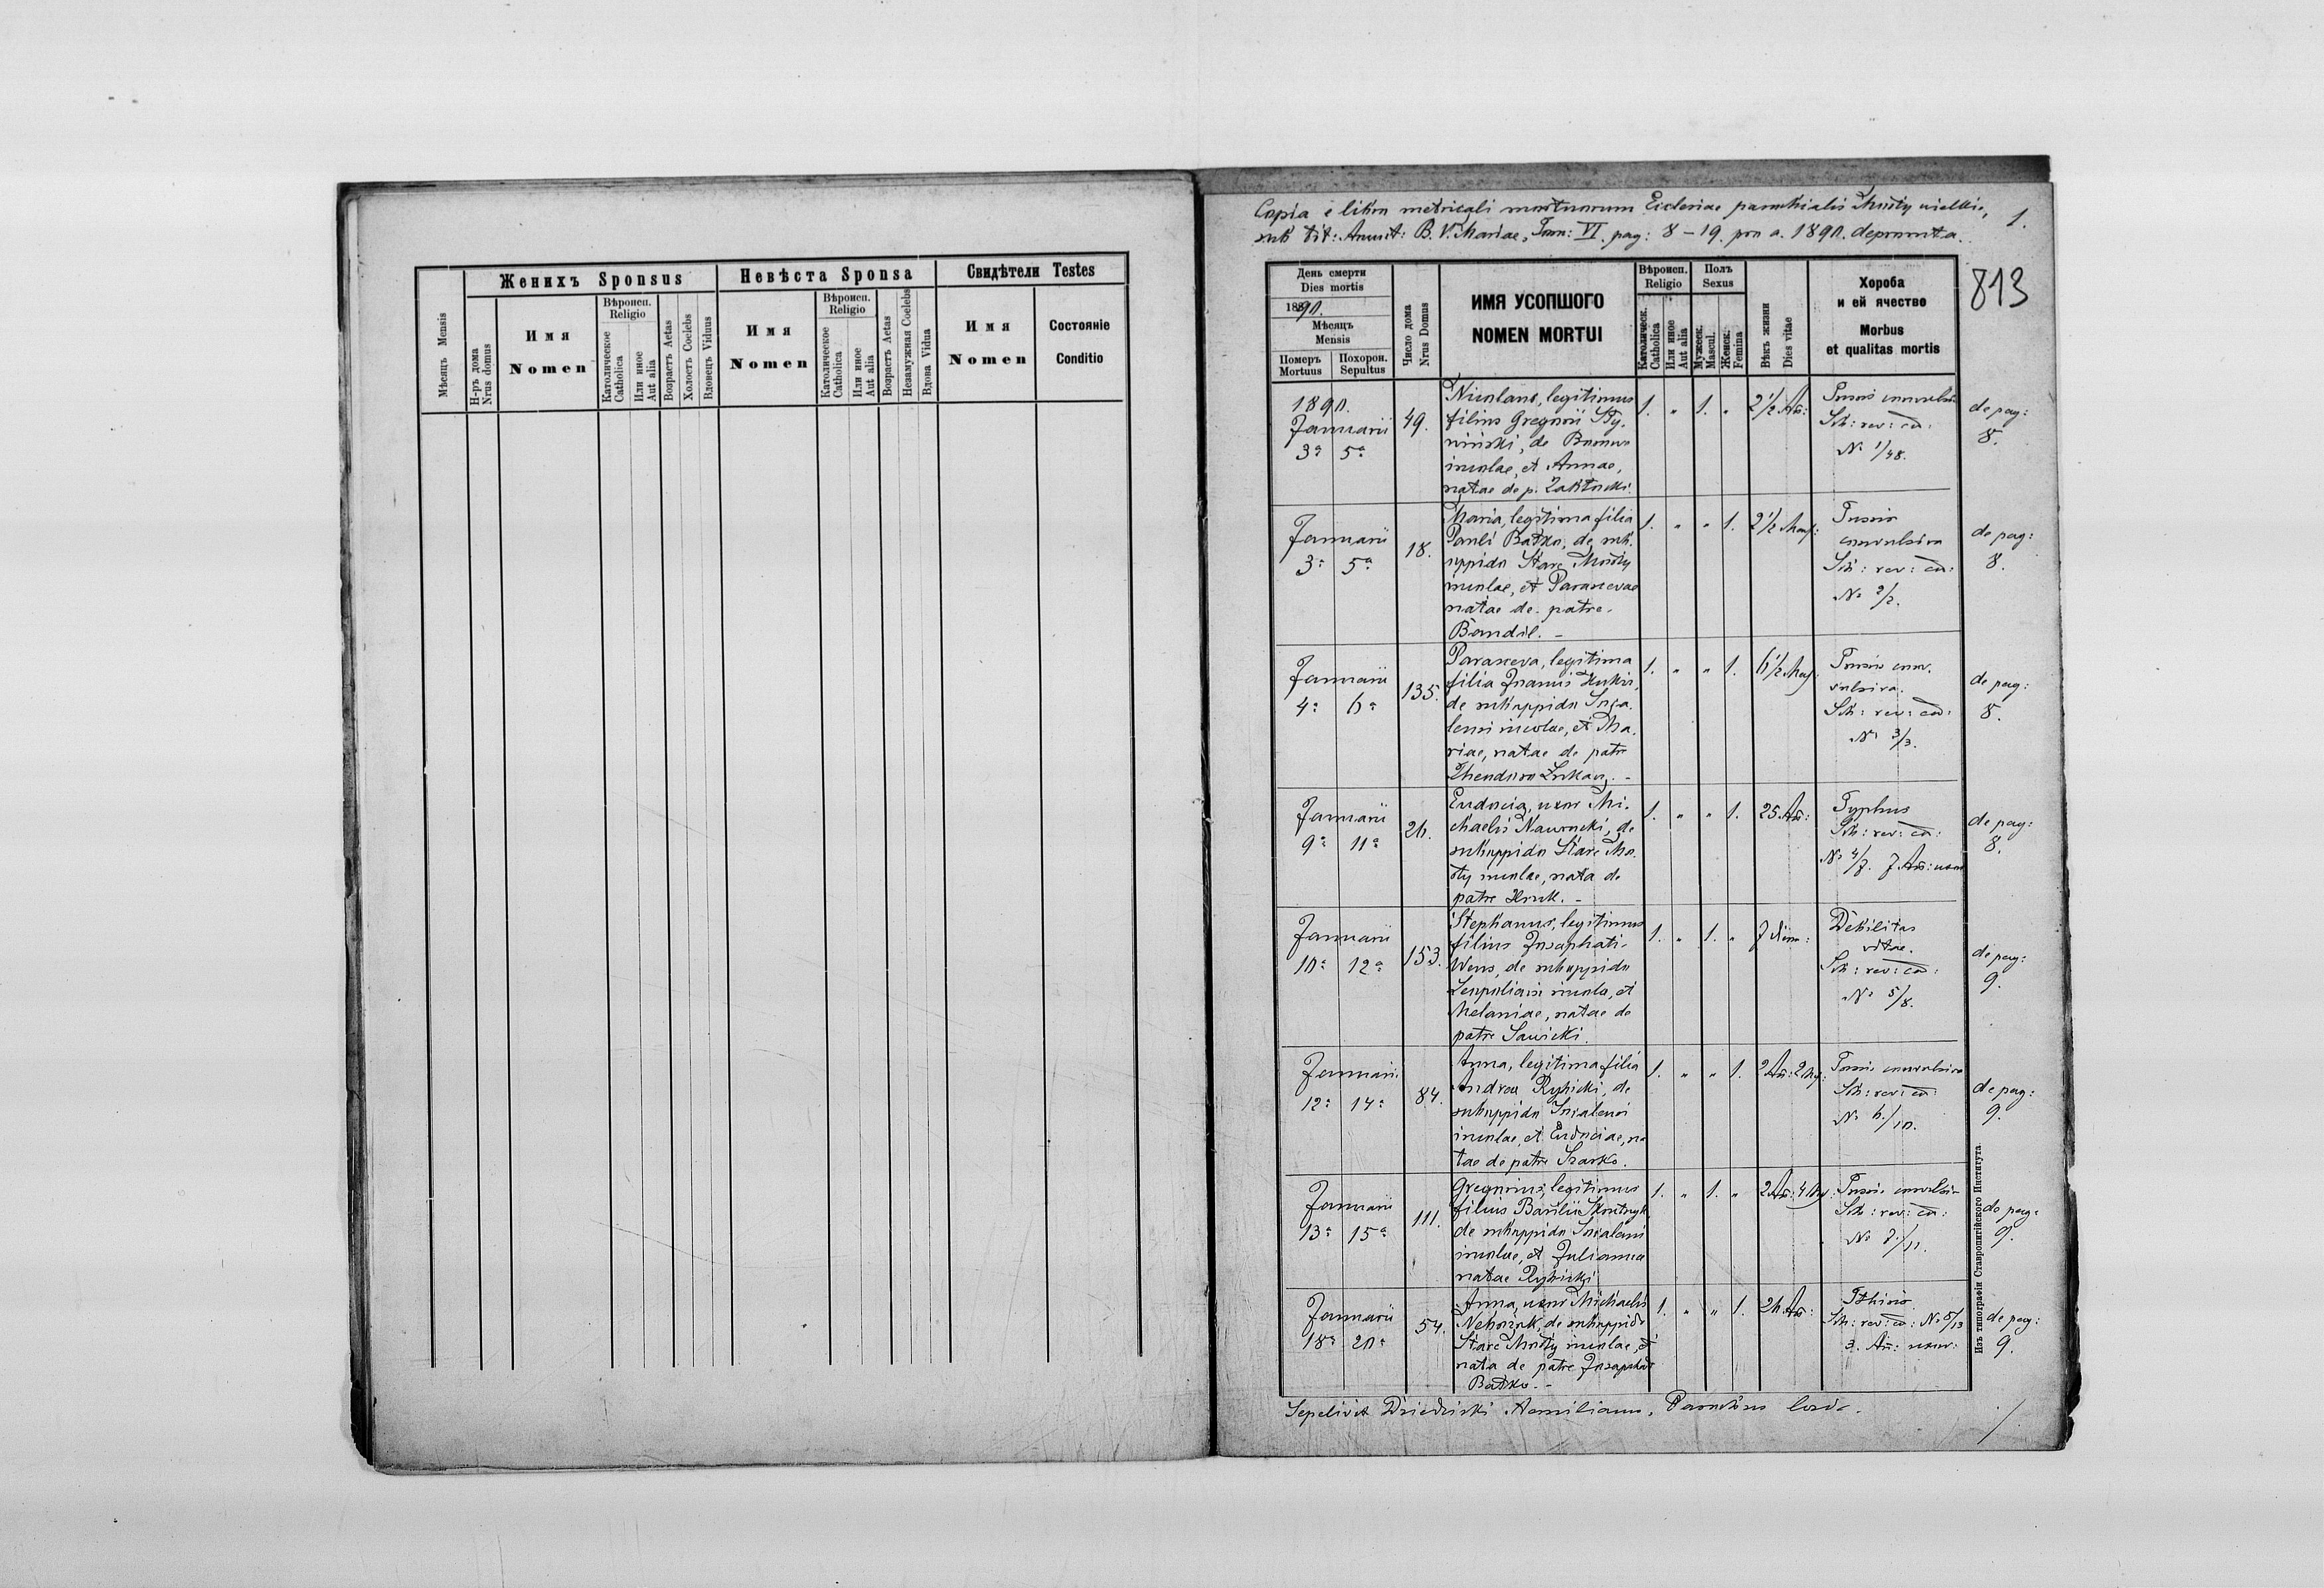 Женихъ Sponsus
Невѣста Sponsa
Свидѣтели Testes
Мѣсяцъ Mensis
Н-ръ дома
Nrus domus
Имя
Nomen
Вѣроисп.
Religio
Католическое
Catholica
Или иное
Aut alia
Возрастъ Aetas
Холостъ Coelebs
Вдовецъ Viduus
Имя
Nomen
Вѣроисп.
Religio
Католическое
Catholica
Или иное
Aut alia
Возрастъ Aetas
Незамужная Coelebs
Вдова Vidua
Имя
Nomen
Состояніе
Conditio
Copia e libro metricali mortuorum Ecclesiae parochialis Mosty wielkie,
sub tit: Anunt: B. V. Mariae, Tom: VI. pag: 8 – 19. pro a. 1890. deprompta.
1.
813
День смерти
Dies mortis
1890.
Мѣсяцъ
Mensis
Померъ
Mortuus
Похорон.
Sepultus
Число дома
Nrus Domus
ИМЯ УСОПШОГО
NOMEN MORTUI
Вѣроисп.
Religio
Католическ.
Catholica
Или иное
Aut alia
Полъ
Sexus
Мужеск.
Mascul.
Женск.
Femina
Вѣкъ жизни
Dies vitae
Хороба
и ей ячество
Morbus
et qualitas mortis
1890.
Januarii
3a 5a
49.
Nicolaus, legitimus
filius Gregorii
de
incolae, et Annae,
natae de p.
1. " 1. "
2 1/2 An:
Tussis convulsiva
Sch: rev: cad:
No 1/48.
de pag:
8.
Januarii
3a 5a
18.
Maria, legitima filia
Pauli Batko, de sub-
oppido Stare Mosty
incolae, et Parascevae
natae de patre
Bandil. –
1. " " 1.
2 1/2 Mens:
Tussis
convulsiva
Sch: rev: cad:
No 2/2.
de pag:
8.
Januarii
4a 6a
135.
Parasceva, legitima
filia Joannis
de suboppido Soka-
lensi incolae, et Ma-
riae, natae de patre
Theodoro –
1. " " 1.
6 1/2 Mens:
Tussis conv-
vulsiva.
Sch: rev: cad:
No 3/3.
de pag:
8.
Januarii
9a 11a
26.
Eudocia, uxor Mi-
chaelis Nawrocki, de
suboppido Stare Mo-
sty incolae, nata de
patre Hruk. –
1. " " 1.
25 An:
Typhus
Sch: rev: cad:
No 4/7. 7 An: uxor
de pag:
8.
Januarii
10a 12a
153.
Stephanus, legitimus
filius Josaphati
Wens, de suboppido
Leopoliensi incola, et
Melaniae, natae de
patre Sawicki.
1. " 1. "
7 diem:
Debilitas
vitae.
Sch: rev: cad:
No 5/8.
de pag:
9.
Januarii
12a 14a
84.
Anna, legitima filia
Andreae Rybicki, de
suboppido Sokalensi
incolae, et Eudociae, na-
tae de patre Szarko.
1. " " 1.
2 An: 2 Mens:
Tussis convulsiva
Sch: rev: cad:
No 6/10.
de pag:
9.
Januarii
13a 15a
111.
Gregorius, legitimus
filius Basilii
de suboppido Sokalensi
incolae, et Juliannae
natae Rybicki
1. " 1. "
2 An: 4 Mens:
Tussis convulsi-
Sch: rev: cad:
No 7/11.
de pag:
9.
Januarii
18a 20a
54.
Anna, uxor Michaelis
de suboppido
Stare Mosty incolae, et
nata de patre Josaphat
Batko. –
1. " " 1.
26 An:
Pthisis
Sch: rev: cad: No 8/13
3. An: uxor:
de pag:
9.
Изъ типографіи Ставропигійского Института
Sepelivit Dziedzicki Aemilianus, Parochus loci.